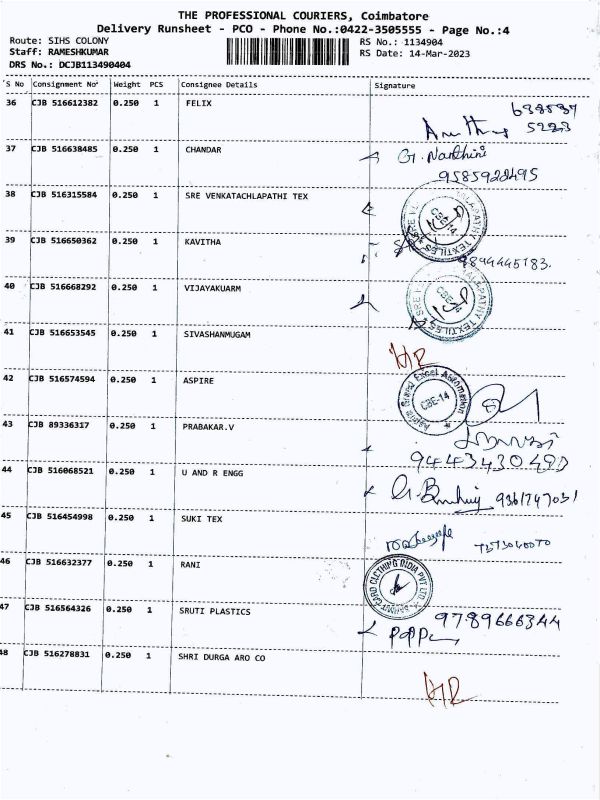 THE PROFESSIONAL COURIERS, Coimbatore
Delivery Runsheet - PCO - Phone No.:0422-3505555 - Page No.:4
Route: SIHS COLONY RS No.: 1134904
Staff: RAMESHKUMAR RS Date: 14-Mar-2023
DRS No.: DCJB113490404
S No Consignment No Weight PCS Consignee Details Signature
36 CJB 516612382 0.250 1 FELIX
37 CJB 516638485 0.250 1 CHANDAR G. Nanthini
9585922495
38 CJB 516315584 0.250 1 SRE VENKATACHLAPATHI TEX
39 CJB 516650362 0.250 1 KAVITHA
9894445183.
40 CJB 516668292 0.250 1 VIJAYAKUARM
41 CJB 516653545 0.250 1 SIVASHANMUGAM
42 CJB 516574594 0.250 1 ASPIRE CBE-14
43 CJB 89336317 0.250 1 PRABAKAR.V
44 CJB 516068521 0.250 1 U AND R ENGG 9361747031
45 CJB 516454998 0.250 1 SUKI TEX
46 CJB 516632377 0.250 1 RANI
47 CJB 516564326 0.250 1 SRUTI PLASTICS 9789666344
48 CJB 516278831 0.250 1 SHRI DURGA ARO CO